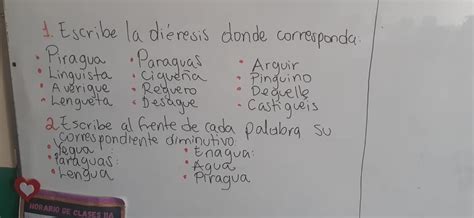 1. Escribe la diéresis donde corresponda.
• Piragua • Paraguas • Arguir
• Linguista • Cigueña • Pinguino
• Averigue • Reguero • Deguelle
• Lengueta • Desague • Castigueis
2. Escribe al frente de cada palabra su
correspondiente diminutivo:
• Yegua • Enagua:
• Paraguas: • Agua
• Lengua • Piragua
HORARIO DE CLASES